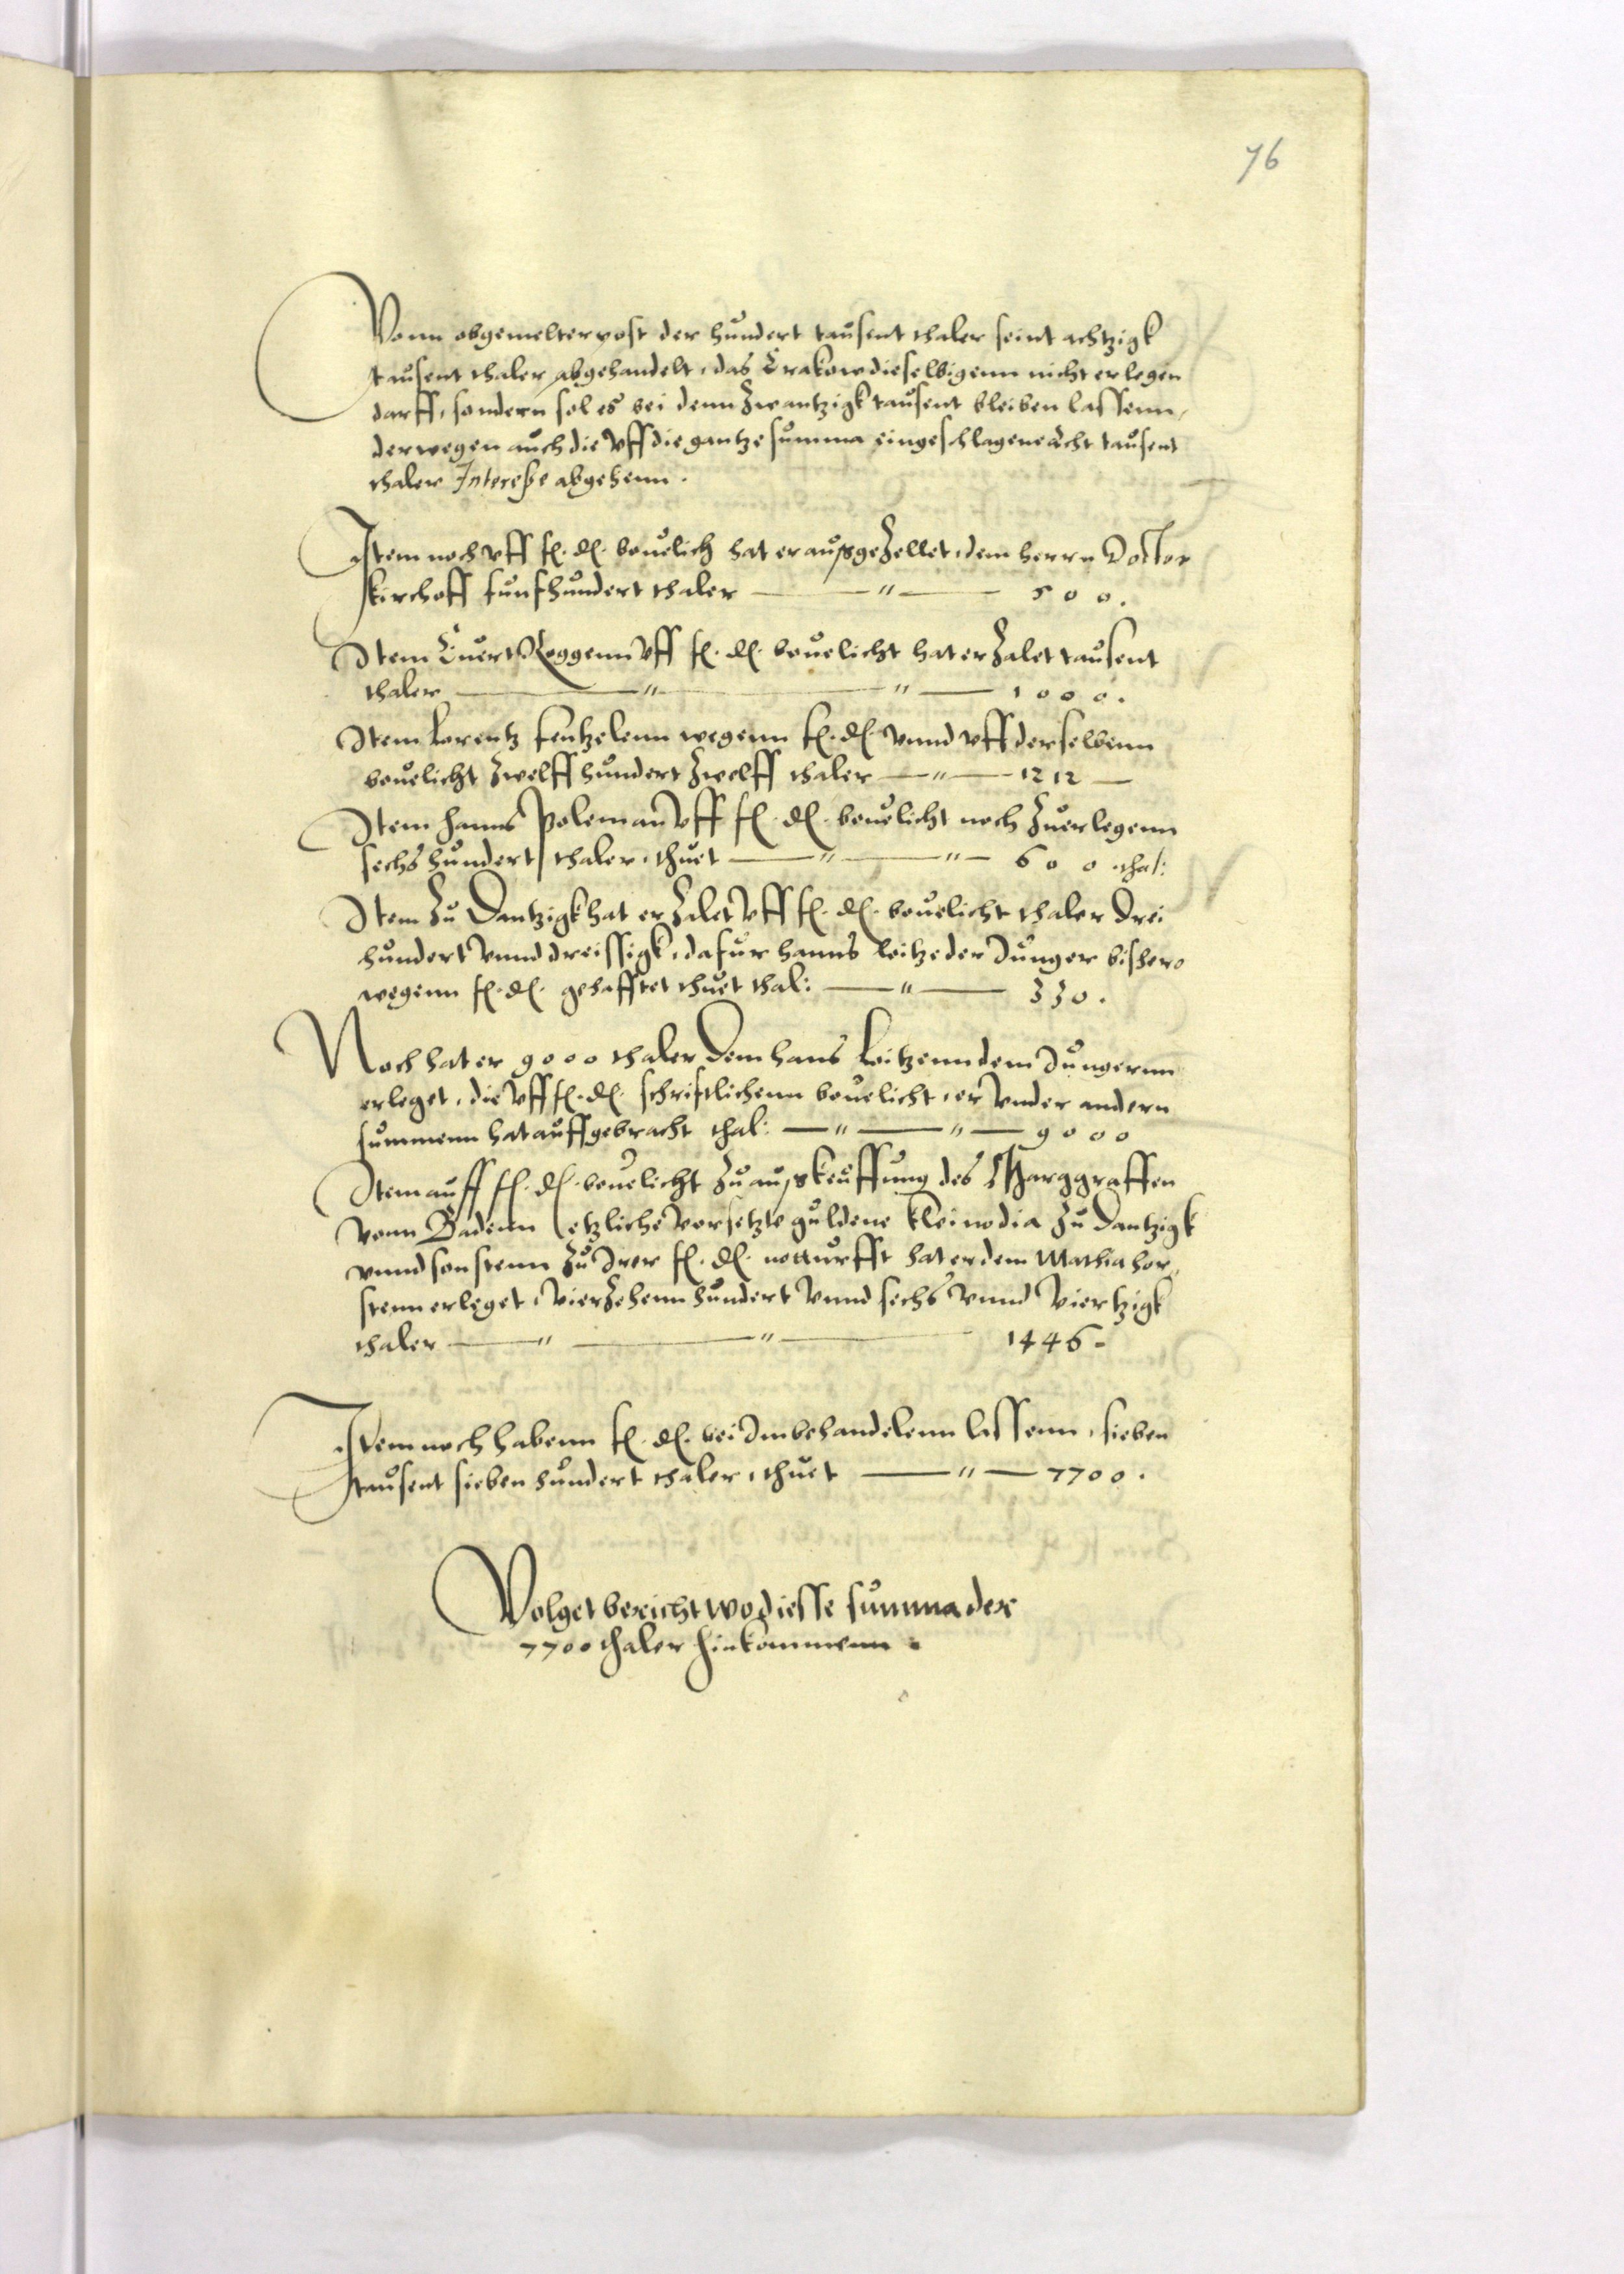 76
Vonn obgemelter post der hundert tausent thaler seint achtzigk
tausent thaler abgehandelt, das Crakow dieselbigenn nicht erlegen
darff, sondern sol es bei denn zwantzigk tausent bleiben lassenn,
derwegen auch die uff die gantze summa eingeschlagene acht tausent
thaler Interesse abgehenn.
Item noch uff f. d. beuelich hat er außgezellet, dem herrn Doctor
Kirchoff funfhundert thaler — " — 500.
Item Roggenn uff f. d. beuelicht hat erzalet tausent
thaler — " — " — 1000.
Item Lorentz wegenn f. d. vnnd uff derselbenn
beuelicht zwelff hundert zwelff thaler — " — 1212 —
Item Hanns Poleman uff f. d. beuelicht noch zuerlegenn
sechs hundert thaler, thuet — " — " — 600 thal:
Item zu Dantzigk hat erzalet uff f. d. beuelicht thaler drei
hundert vnnd dreissigk, dafur hanns Loitze der Junger bishero
wegenn f. d. gehafftet thuet thal: — " — 330.
Noch hat er 9000 thaler dem hans Loitzenn dem Jungernn
erleget, die uff f. d. schriftlichenn beuelicht, er vnder andern
summenn hat auffgebracht thal: — " — " — 9000
Item auff f. d. beuelicht zu außkeuffung des Marggraffen
vonn Badenn etzliche versetzte guldene kleinodia zu Dantzigk
vnnd sonstenn zu Irer f. d. notturfft hat er dem Mathia hor,
stenn erleget, vierzehenn hundert vnnd sechs vnnd viertzigk
thaler — " — " — 1446.
Item noch habenn f. d. bei Im behandelenn lassenn, sieben
tausent sieben hundert thaler, thuet — " — 7700.
Volget bericht wo diesse summa der
7700 thaler hinkommenn.